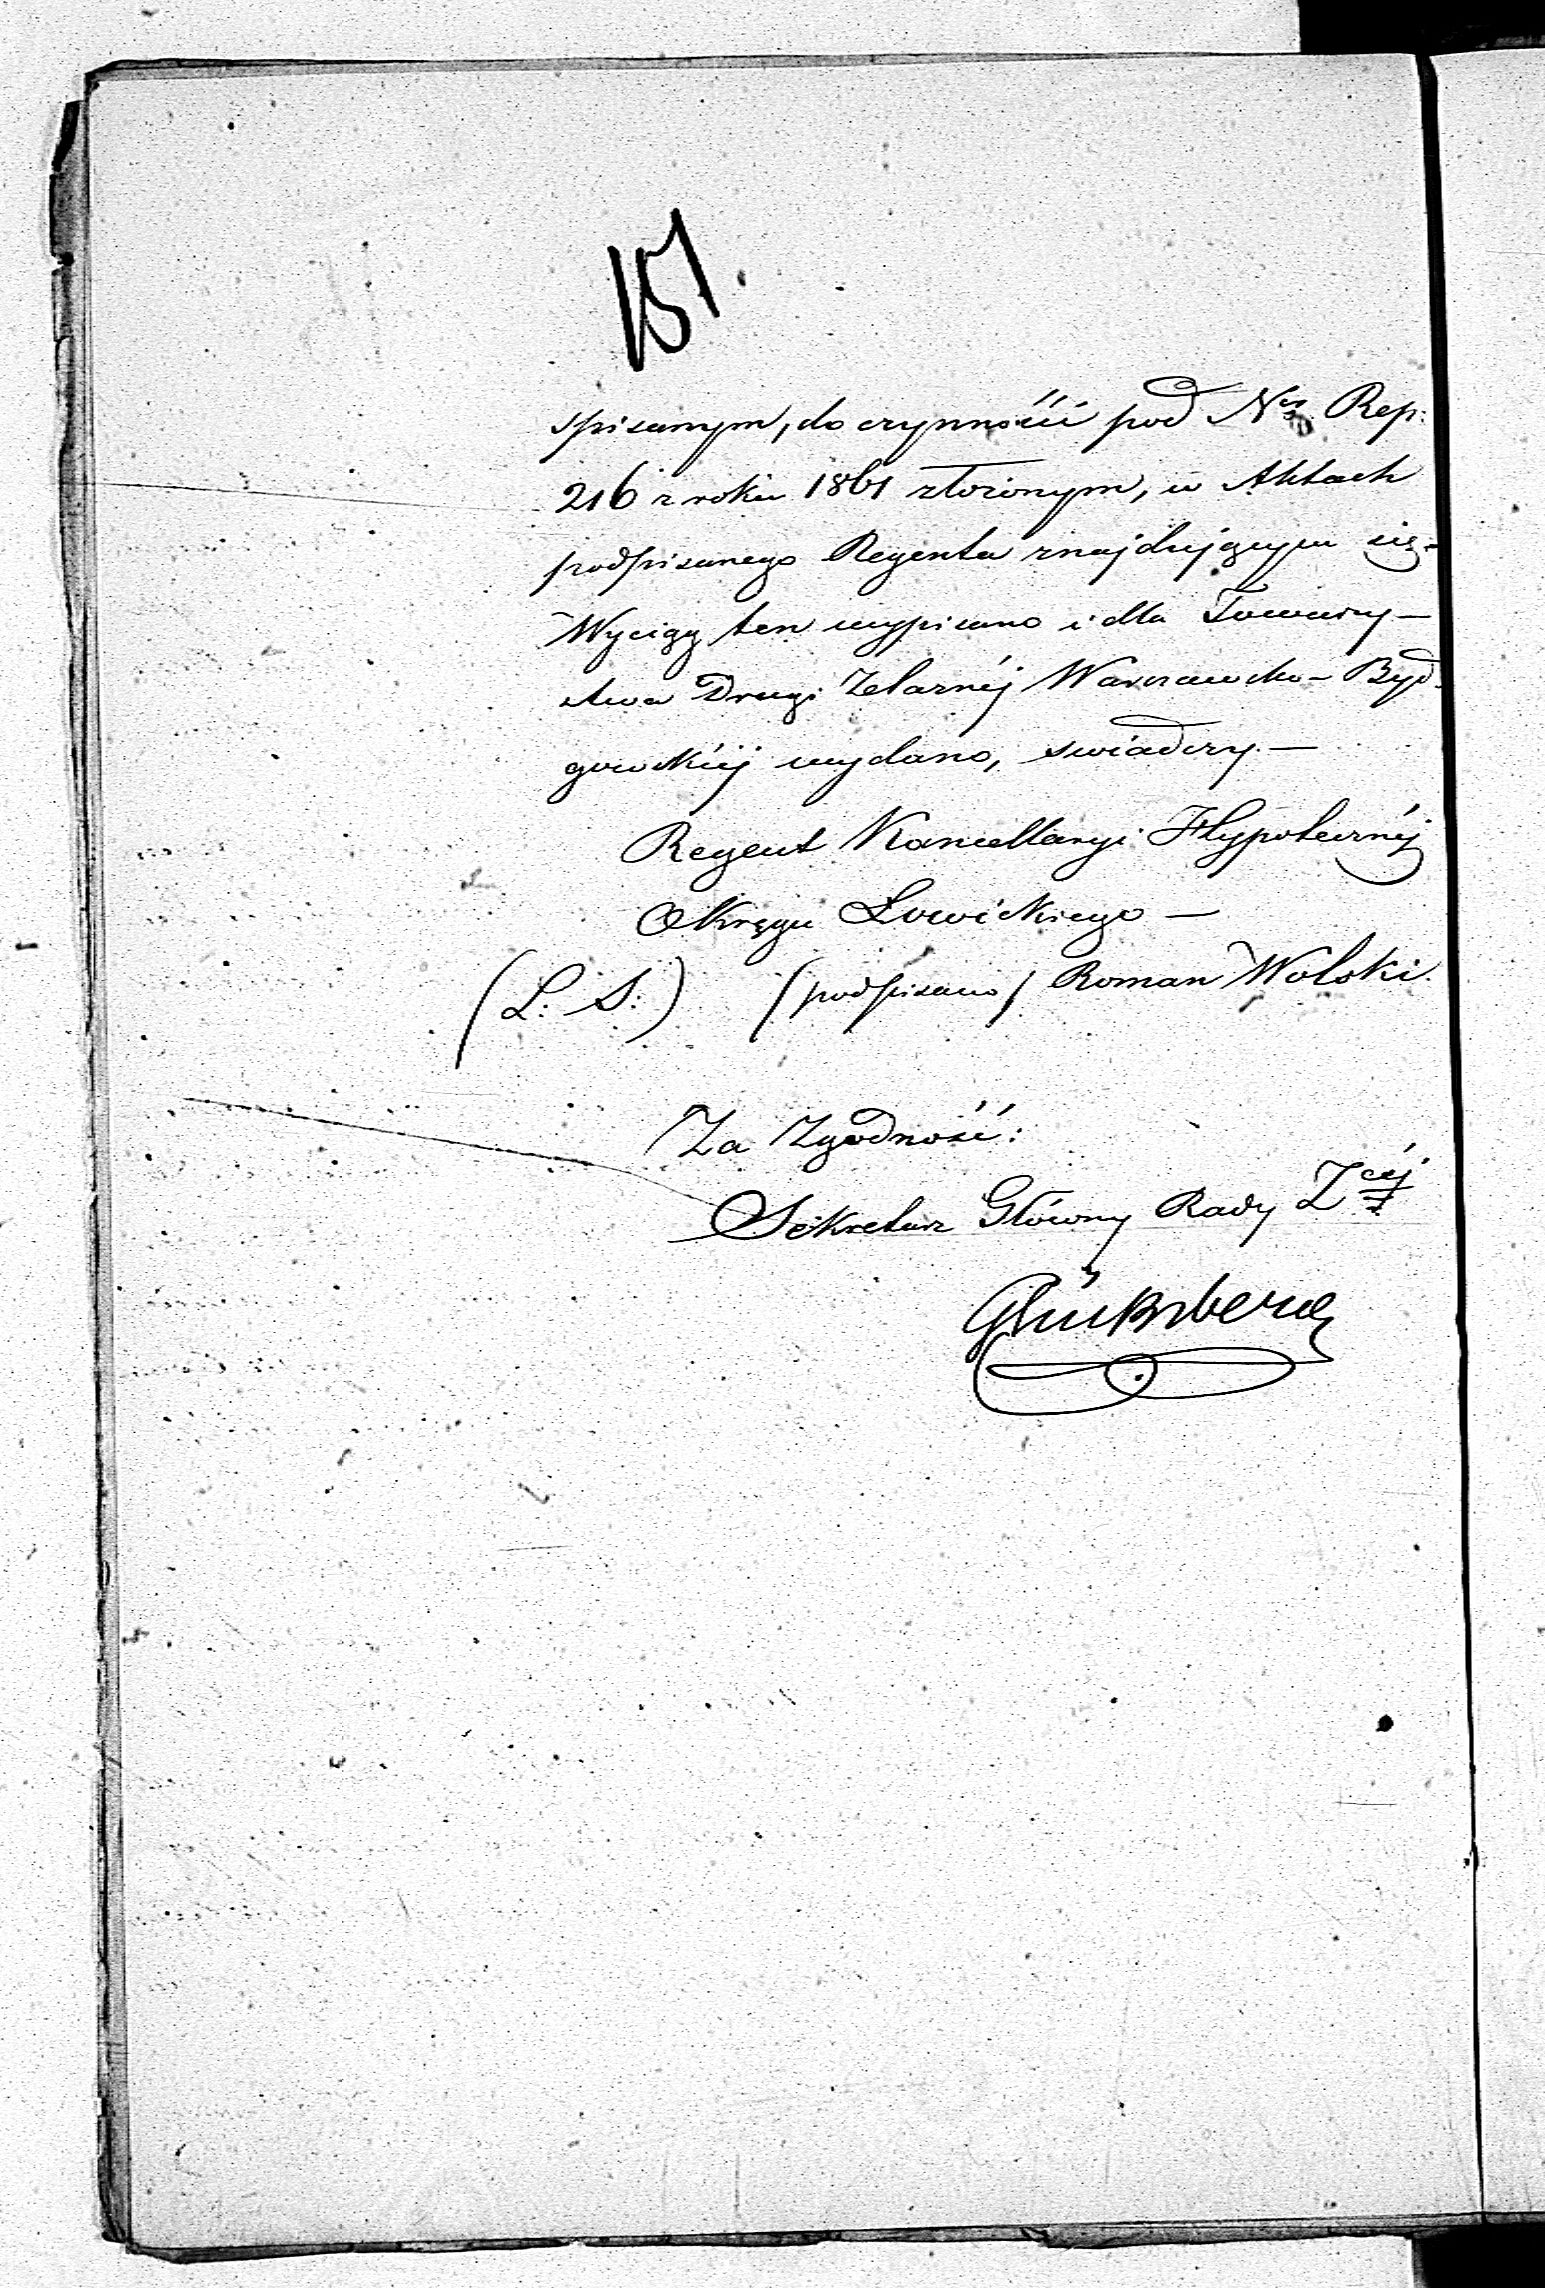 151.
spisanym, do czynności pod Nrem Rep:
216 z roku 1861 złożonym, w Aktach
podpisanego Regenta znajdującym się –
Wyciąg ten wypisano i dla Towarzy –
stwa Drogi Żelaznéj Warszawsko – Byd
gowskiéj wydano, świadczy. –
Regent Kancellaryi Hypotecznéj
Okręgu Łowickiego –
(L: S:) (podpisano) Roman Wolski.
Za Zgodność:
Sekretarz Główny Rady Zcéj
Glücksberg